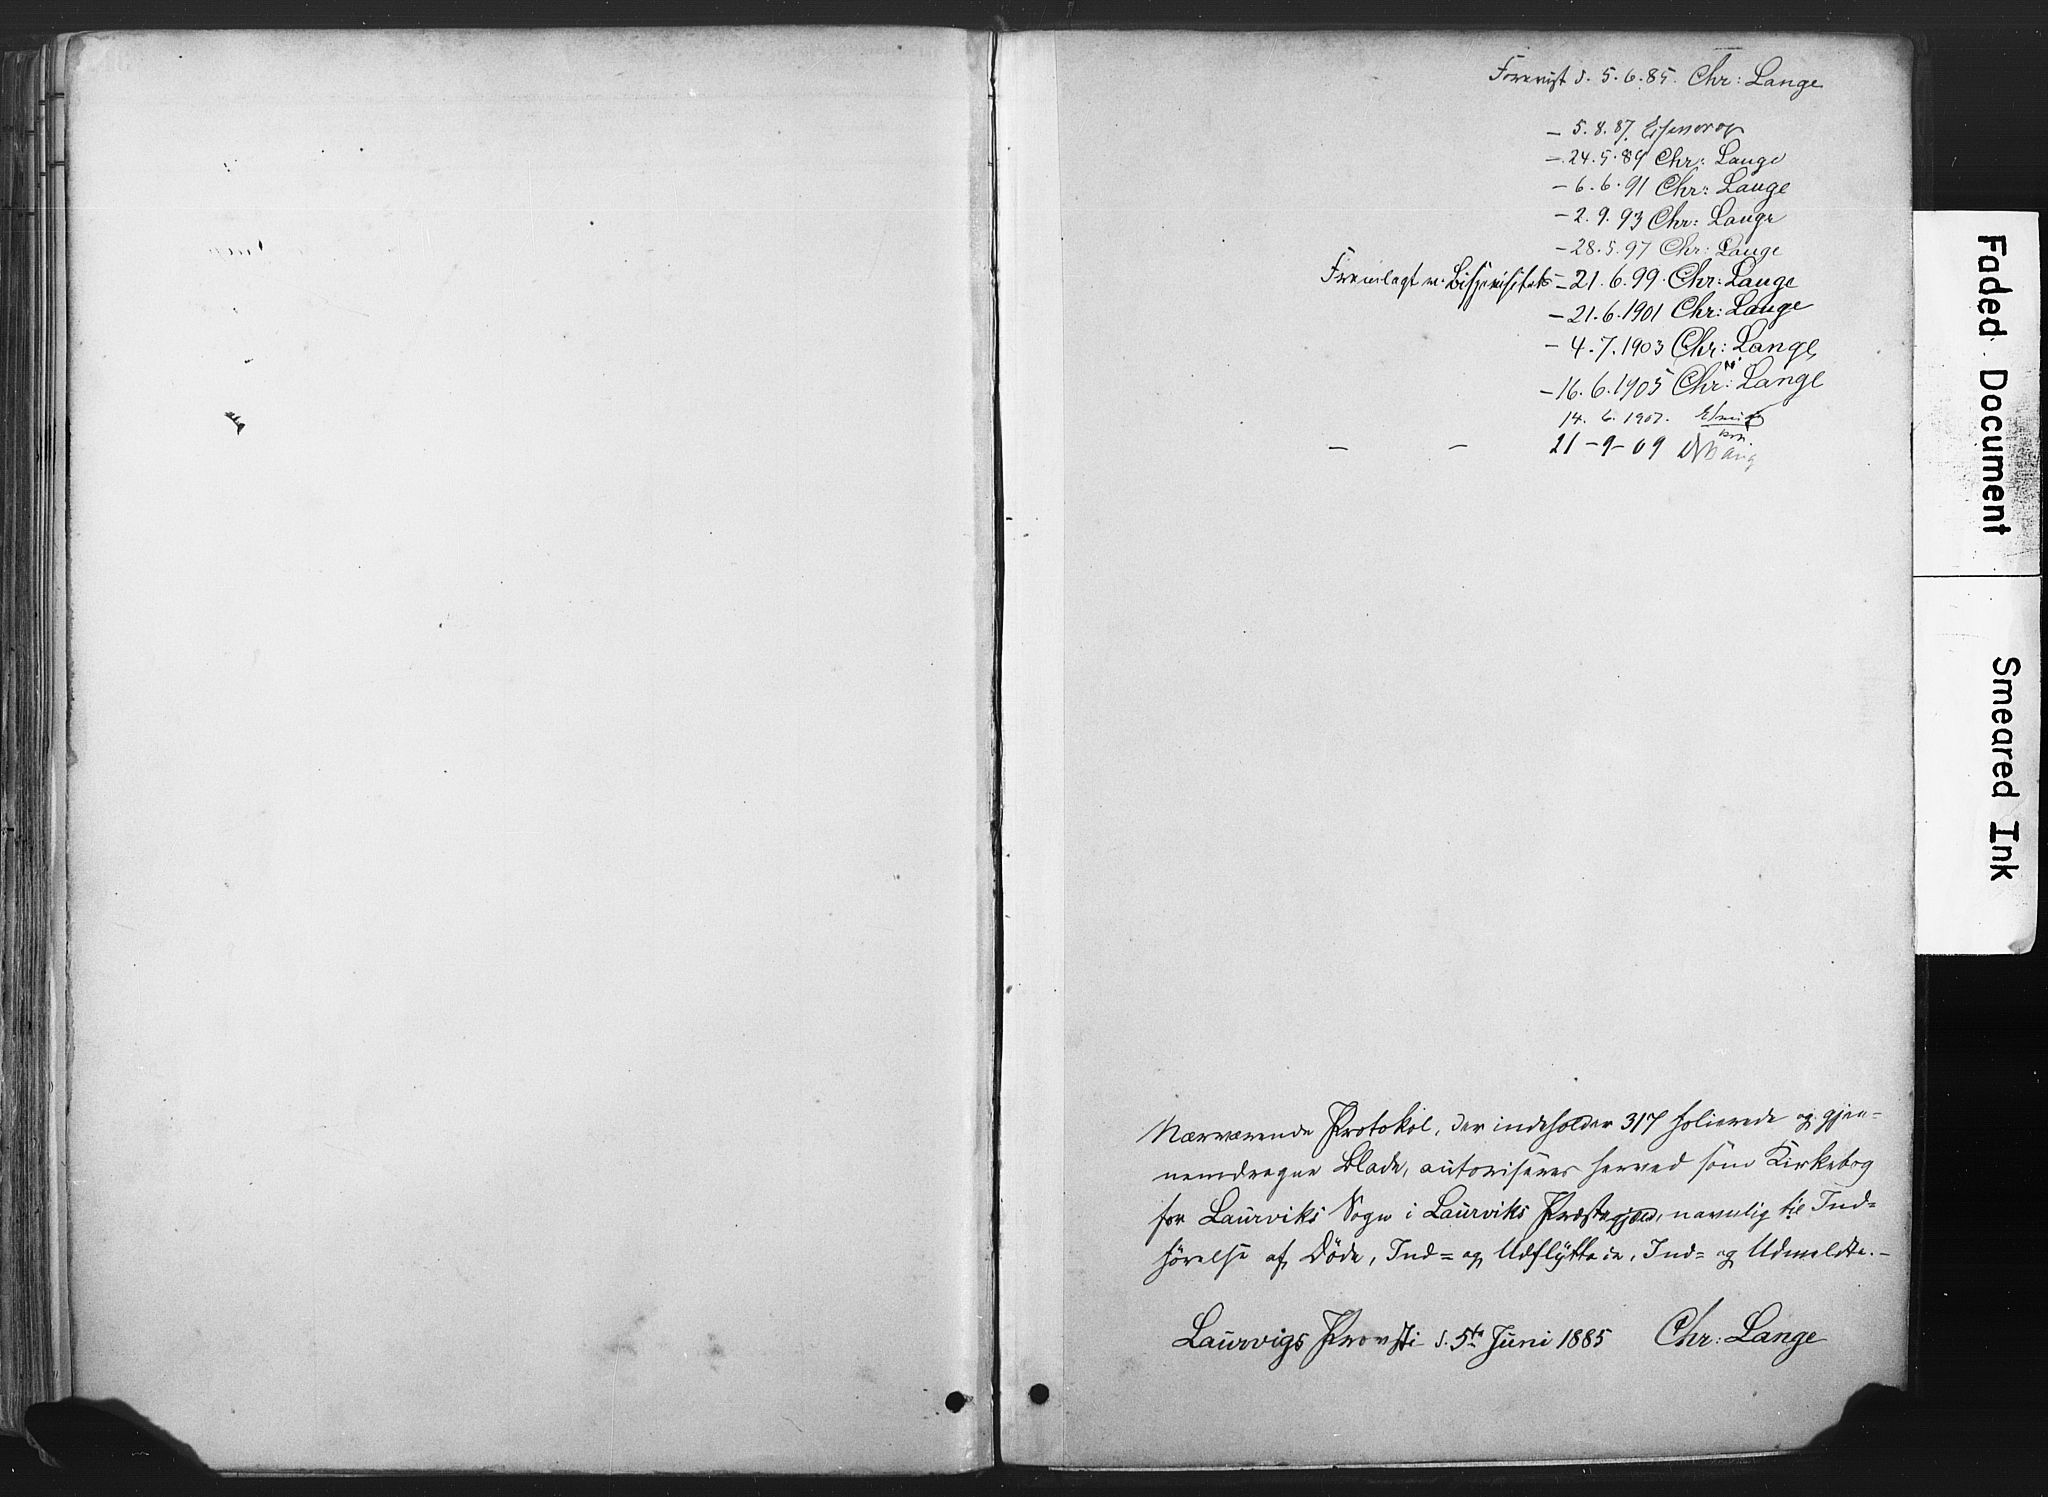 Forevist d. 5.6.85. Chr: Lange
– 5.8.87.
– 24.5.89 Chr: Lange
– 6.6.91 Chr: Lange
– 2.9.93 Chr: Lange
– 28.5.97 Chr: Lange
Fremlagt v. Bispevisitats – 21.6.99. Chr: Lange
– 21.6.1901 Chr: Lange
– 4.7.1903 Chr: Lange
– 16.6.1905 Chr: Lange
14. 6. 1907.
– – 21–9–09
Nærværende Protokol, der indeholder 317 folierede og gjen=
nemdragne Blade, autoriseres herved som Kirkebog
for Laurviks Sogn i Laurviks Præstegjæld, navnlig til Ind=
førelse af Døde, Ind= og Udflyttede, Ind= og Udmeldte. –
Laurvigs Provsti d. 5te Juni 1885 Chr: Lange
Faded Document
Smeared Ink